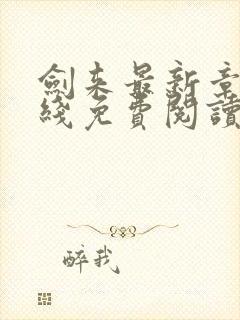 劍来最新章
綫免費閱讀
醉我